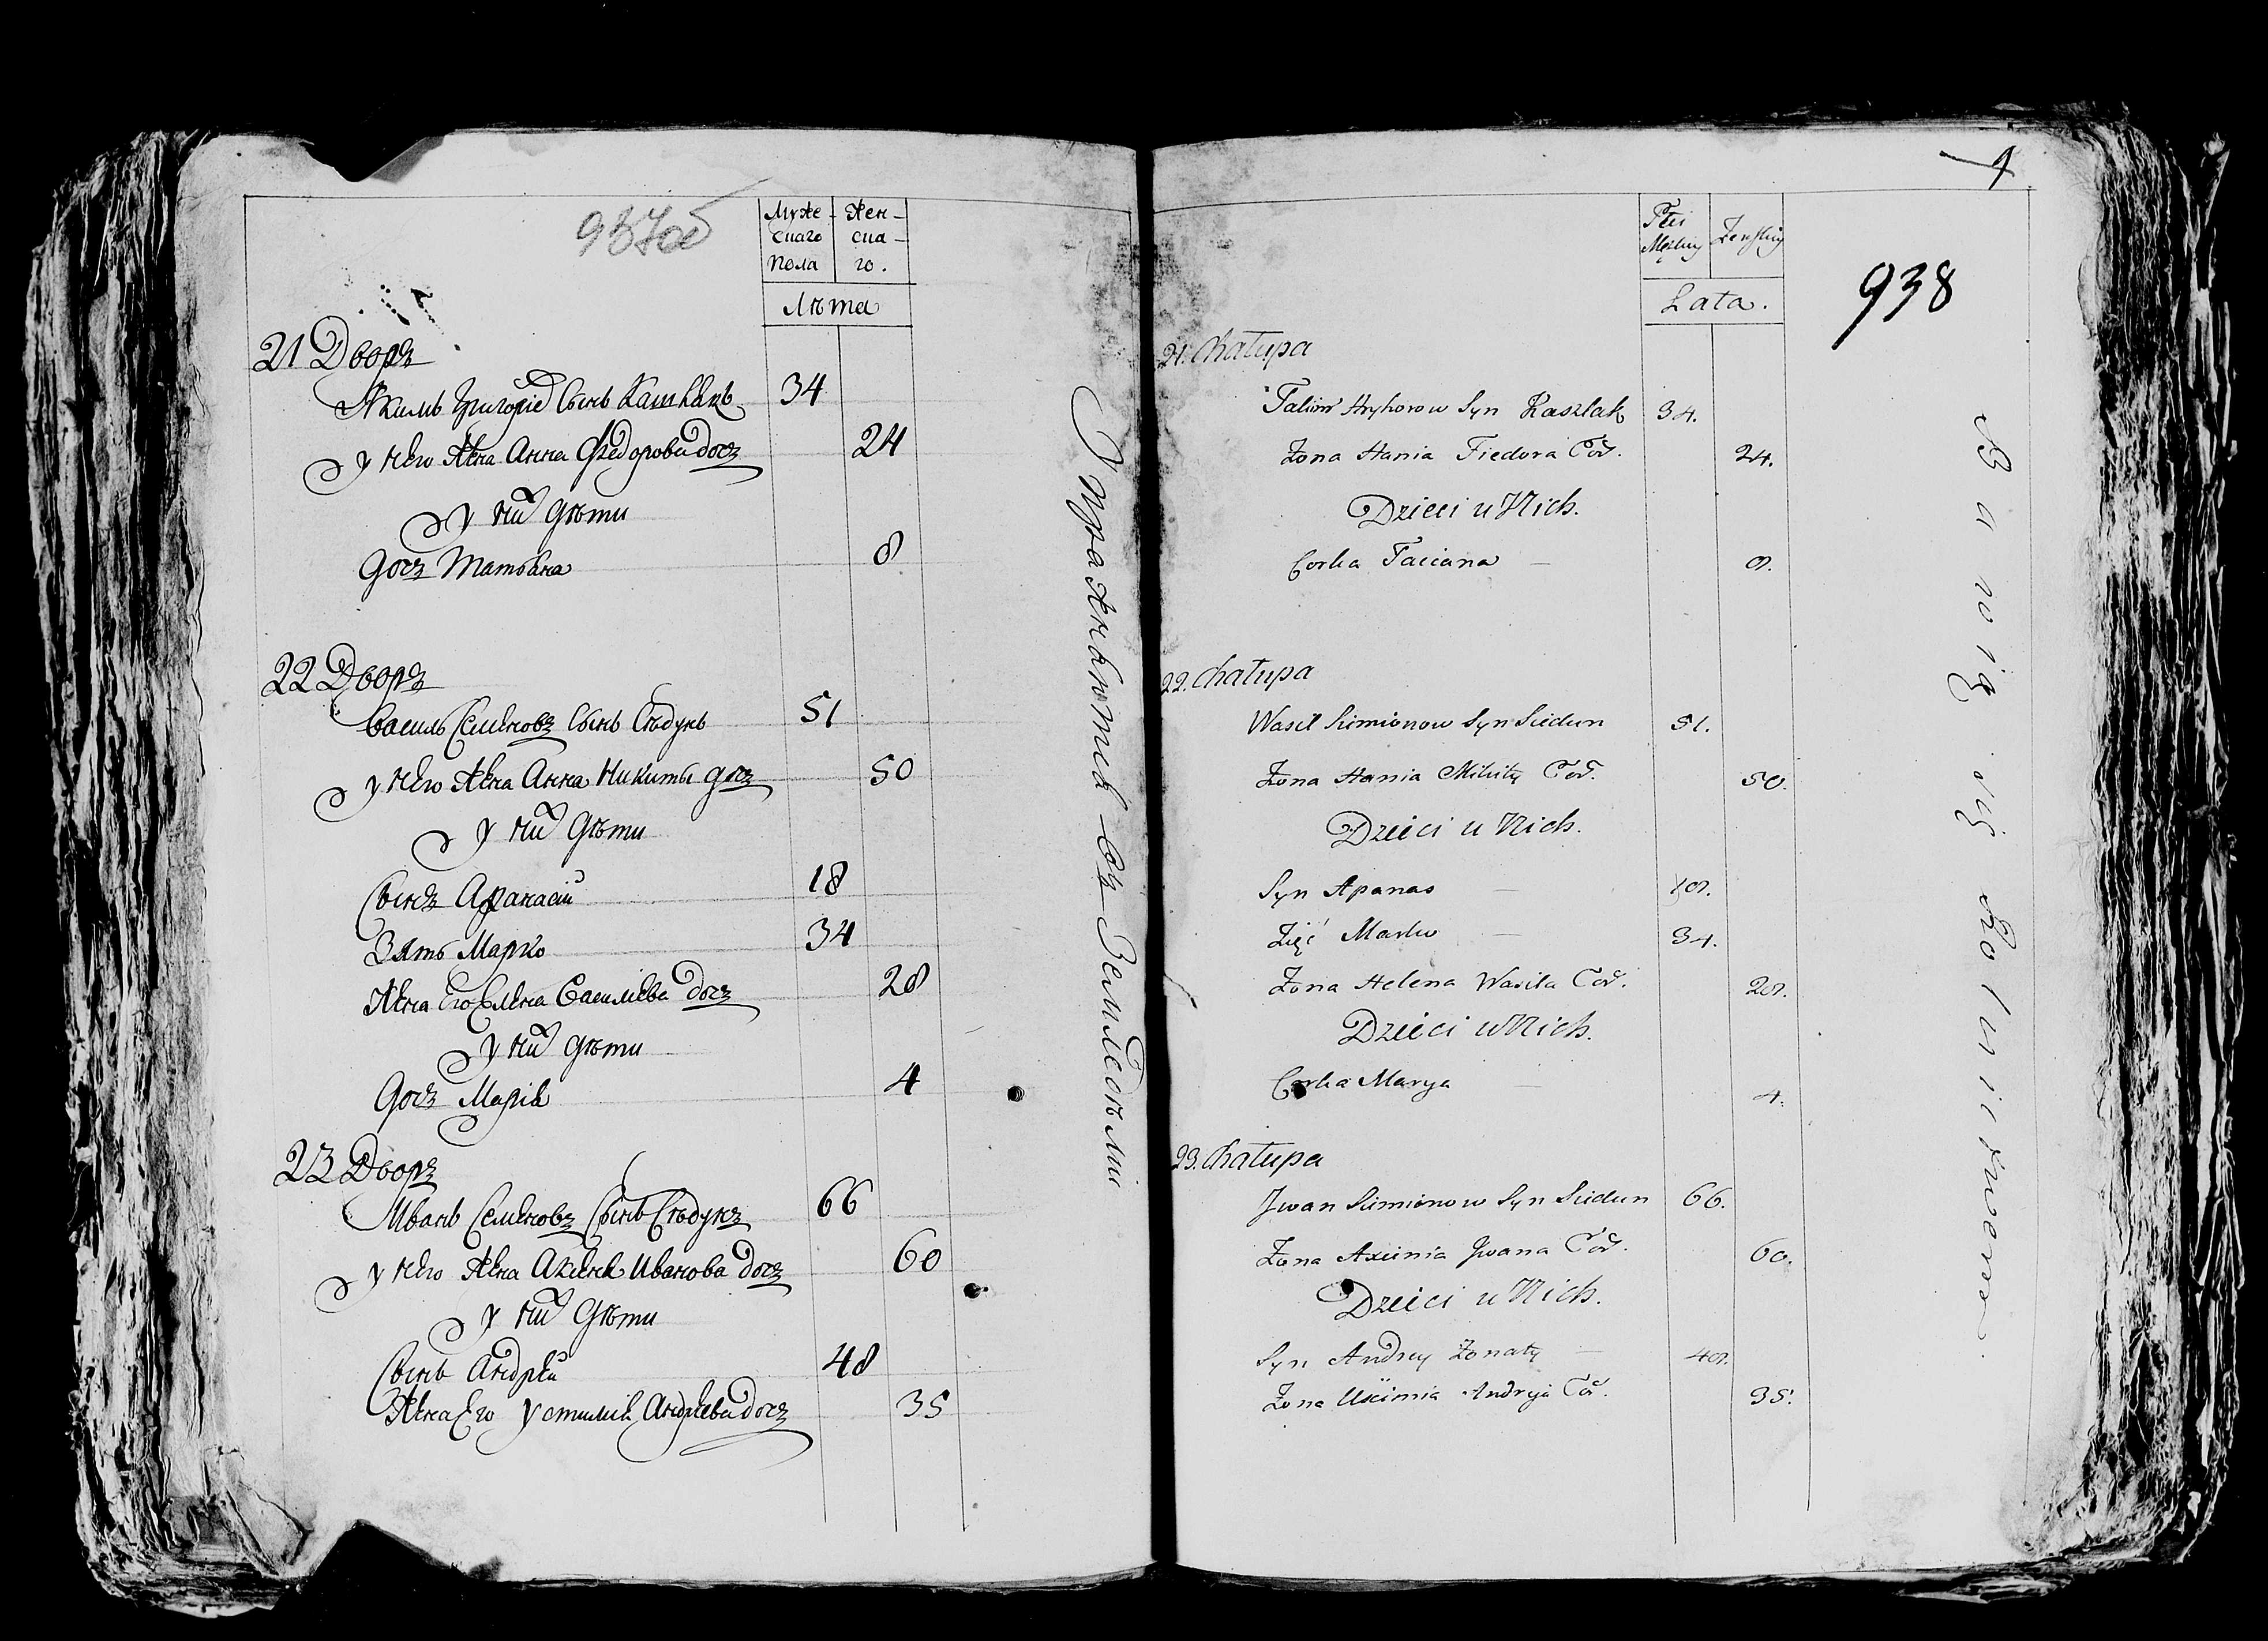 937об
Муже- Жен-
скаго ска-
пола го.
Лѣта
21 Дворъ
Якимъ Григорїев Сынъ Кашлякъ 34
у него Жена Анна Федорова дочъ 24
у них дѣти
дочъ Татьяна 8
22 Дворъ
Василь Семеновъ Сынъ Сѣдунъ 51
у него Жена Анна Никиты дочъ 50
у них дѣти
Сынъ Афанасій 18
Зять Марко 34
Жена Его Елена Василева дочъ 28
у них дѣти
дочъ Марія 4
23 Дворъ
Иванъ Семеновъ Сынъ Сѣдунъ 66
у него Жена Аксеня Иванова дочъ 60
у них дѣти
Сынъ Андрей 48
Жена Его Устимія Андреева дочъ 35
Упражняются въ Земледѣліи
4
Płci
Męskiey Żeńskiey
Lata.
938
21. Chałupa
Hryhorow Syn Kaszlak 34.
Żona Hania Fiedora Cór. 24.
Dzieci u Nich.
Corka Taciana 8.
22. Chałupa
Wasil Simionow Syn Siedun 51.
Żona Hania Mikity Cor. 50.
Dzieci u Nich.
Syn Apanas 18.
Zięć Marko 34.
Żona Helena Wasila Cor. 28.
Dzieci u Nich.
Corka Marya 4.
23. Chałupa
Jwan Simionow Syn Siedun 66.
Żona Axinia Jwana Cór. 60.
Dzieci u Nich.
Syn Andrey Żonaty 48.
Żona Andreja Cór. 35.
Bawią się Rolnictwem